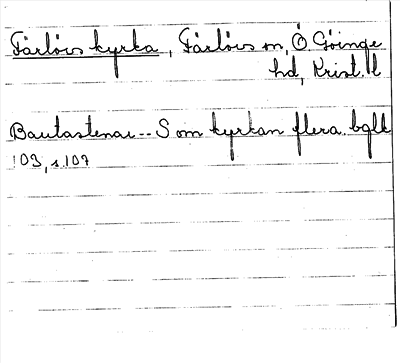 Färlövs kyrka, Färlövs sn, Ö Göinge
hd, Krist. l.
Bautastenar -- S om kyrkan flera. bqll
103, s.107